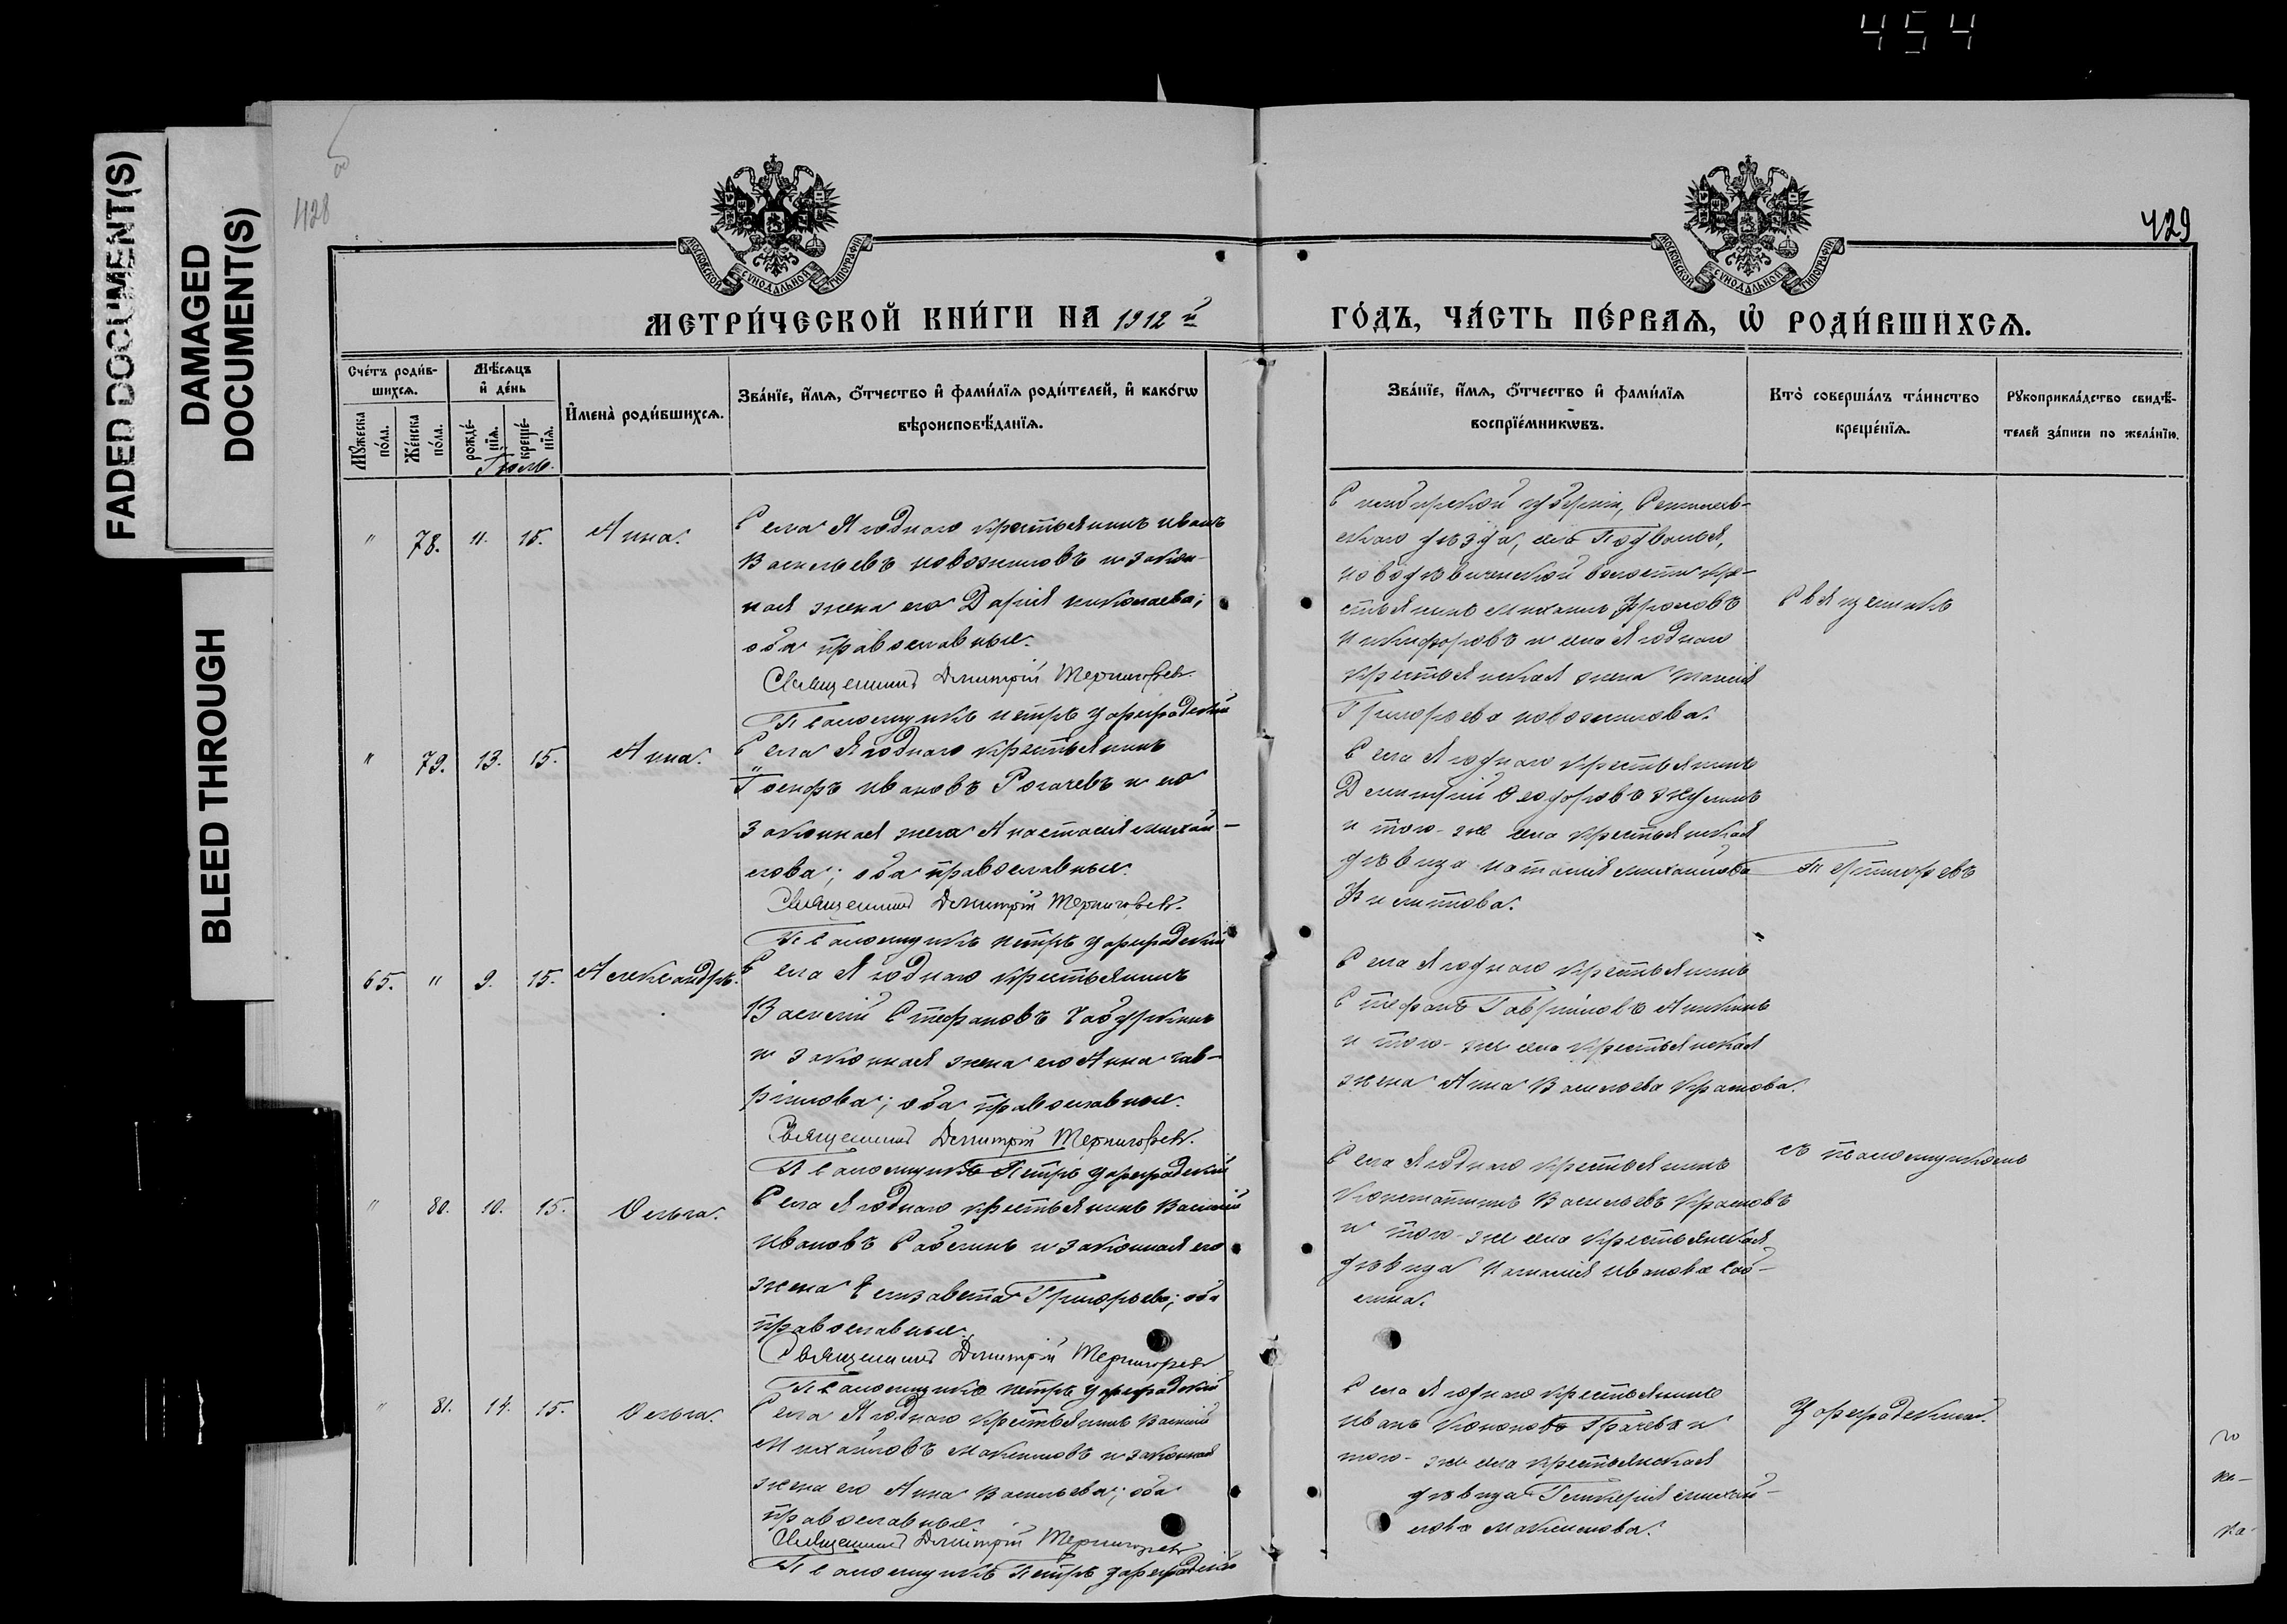 454
FADED DOCUMENT(S)
DAMAGED
DOCUMENT(S)
BLEED THROUGH
428
429
МОСКОВСКОЙ СУНОДАЛЬНОЙ ТИПОГРАФІИ
МОСКОВСКОЙ СУНОДАЛЬНОЙ ТИПОГРАФІИ
МЕТРИ́ЧЕСКОЙ КНИ́ГИ НА 1912 й
ГО́ДЪ, ЧА́СТЬ ПЕ́РВАѦ, Ѡ҆ РОДИ́ВШИХСѦ.
Сче́тъ роди́в-
шихсѧ.
Мꙋ́жеска по́ла.
Же́нска по́ла.
Мѣ́сѧцъ
и҆ де́нь
рожде́-
нїѧ.
креще́-
нїѧ.
Іюль.
И҆мена̀ роди́вшихсѧ.
Зва́нїе, и҆́мѧ, ѻ҆́тчество и҆ фами́лїѧ роди́телей, и҆ како́гѡ
вѣроисповѣ́данїѧ.
Зва́нїе, и҆́мѧ, ѻ҆́тчество и҆ фами́лїѧ
воспрїе́мникѡвъ.
Кто̀ соверша́лъ та́инство
креще́нїѧ.
Рꙋкоприкла́дство свидѣ́-
телей за́писи по жела́нїю.
" 78. 11. 15. Анна.
Села Ягоднаго крестьянинъ Иванъ
Васильевъ Новожиловъ и закон-
ная жена его Дарія Николаева;
оба православные.
Священникъ Димитрій Терпигорьевъ.
Псаломщикъ Петръ Цареградскій
Симбирской губерніи, Сенгилеев-
скаго уѣзда, села Подвалья,
Новодѣвиченской волости кре-
стьянинъ Михаилъ Фроловъ
Никифоровъ и села Ягоднаго
крестьянская жена
Григорьева Новожилова.
Священникъ
" 79. 13. 15. Анна.
Села Ягоднаго крестьянинъ
Іосифъ Ивановъ Рогачевъ и его
законная жена Анастасія Михай-
лова; оба православные.
Священникъ Димитрій Терпигорьевъ.
Псаломщикъ Петръ Цареградскій
Села Ягоднаго крестьянинъ
Димитрій Ѳеодоровъ
и того-же села крестьянская
дѣвица Наталія Михайлова
Терпигорьевъ
65. " 9. 15. Александръ.
Села Ягоднаго крестьянинъ
Василій Стефановъ Чабуркинъ
и законная жена его Анна Гав-
ріилова; оба православные.
Священникъ Димитрій Терпигорьевъ.
Псаломщикъ Петръ Цареградскій
Села Ягоднаго крестьянинъ
Стефанъ Гавріиловъ Аникинъ
и того-же села крестьянская
жена Анна Васильева Краснова.
" 80. 10. 15. Ольга.
Села Ягоднаго крестьянинъ Василій
Ивановъ Саблинъ и законная его
жена Елизавета Григорьева; оба
православные.
Священникъ Димитрій Терпигорьевъ
Псаломщикъ Петръ Цареградскій
Села Ягоднаго крестьянинъ
Константинъ Васильевъ Красновъ
и того-же села крестьянская
дѣвица Наталія Иванова Саб-
лина.
съ псаломщикомъ
" 81. 14. 15. Ольга.
Села Ягоднаго крестьянинъ Василій
Михайловъ Максимовъ и законная
жена его Анна Васильева; оба
православные.
Священникъ Димитрій Терпигорьевъ
Псаломщикъ Петръ Цареградскій
Села Ягоднаго крестьянинъ
Иванъ Кононовъ Грачевъ и
того-же села крестьянская
дѣвица Гликерія Михай-
лова Максимова.
Цареградскимъ.